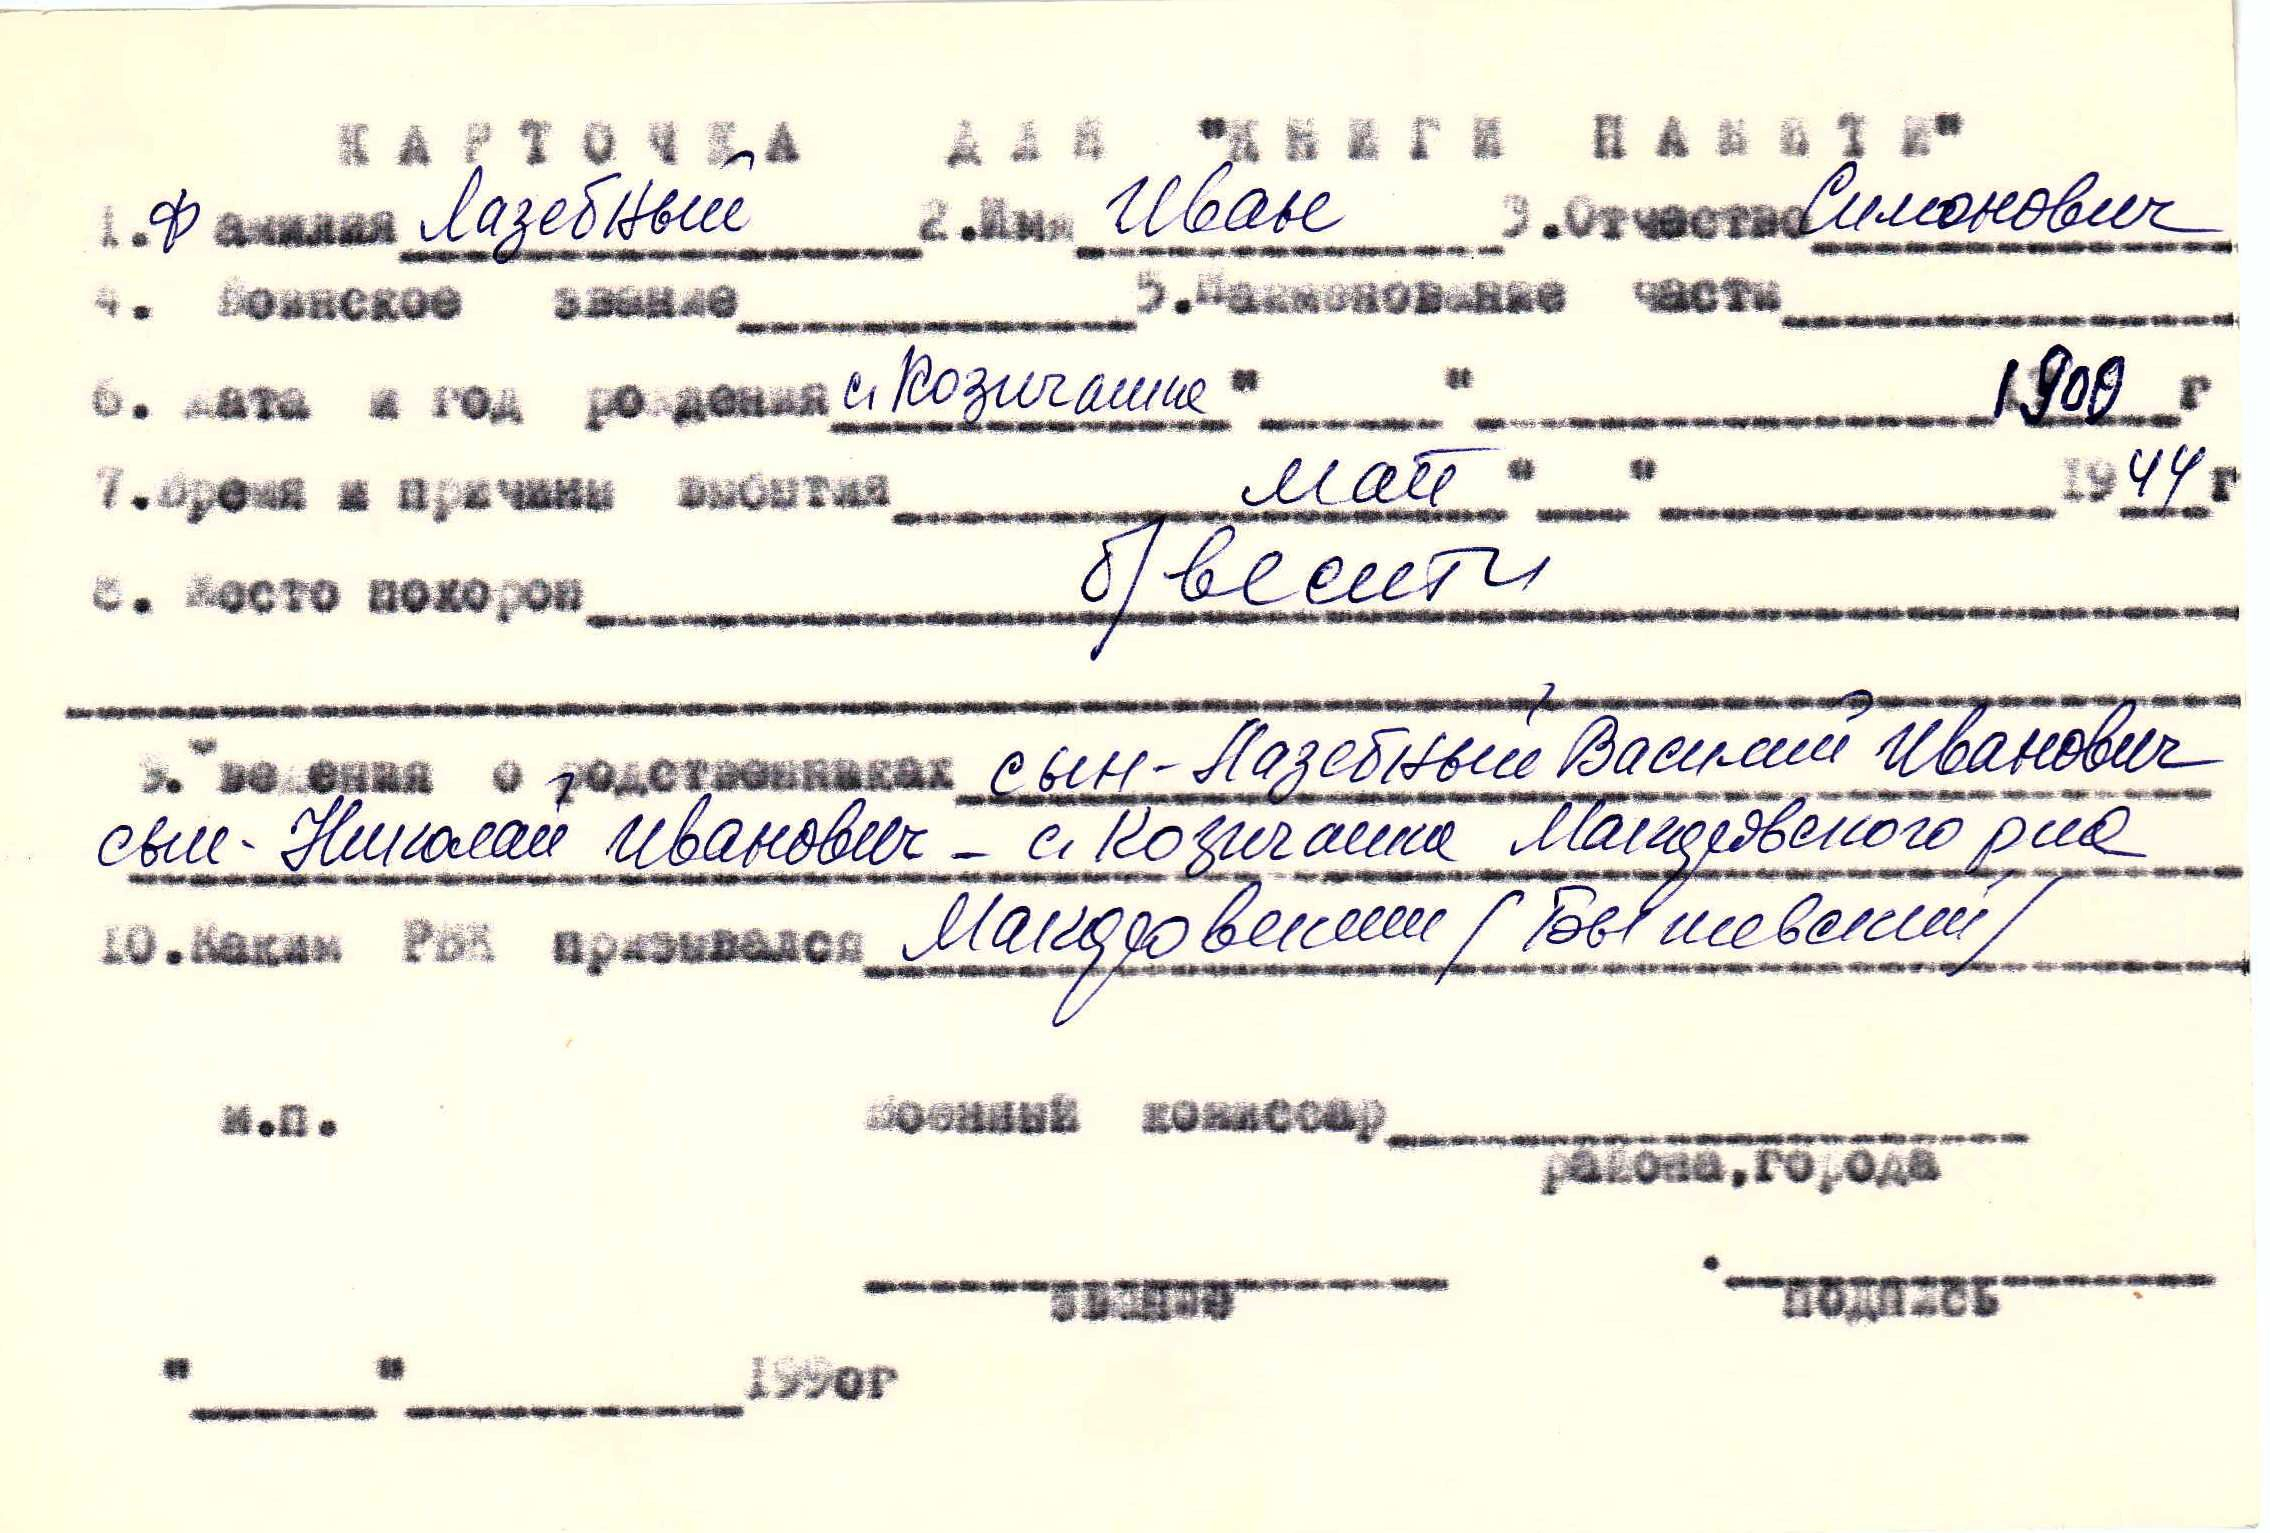 КАРТОЧКА ДЛЯ "КНИГИ ПАМЯТИ"
1. Фамилия Лазебный 2.Имя Иван 3.Отчество Симонович
4. Воинское звание 5.Наименование части
6. Дата и год рождения с. Козичанка " " 1900 г
7.Время и причины выбытия май " " 1944 г
8. Место похорон б/вести
9. Сведения о родственниках сын - Лазебный Василий Иванович
сын - Николай Иванович - с. Козичанка Макаровского р-на
10.Каким РВК призывался Макаровский (Бышевский)
м.п. Военный комиссар
района,города
звание подпись
" " 199ог